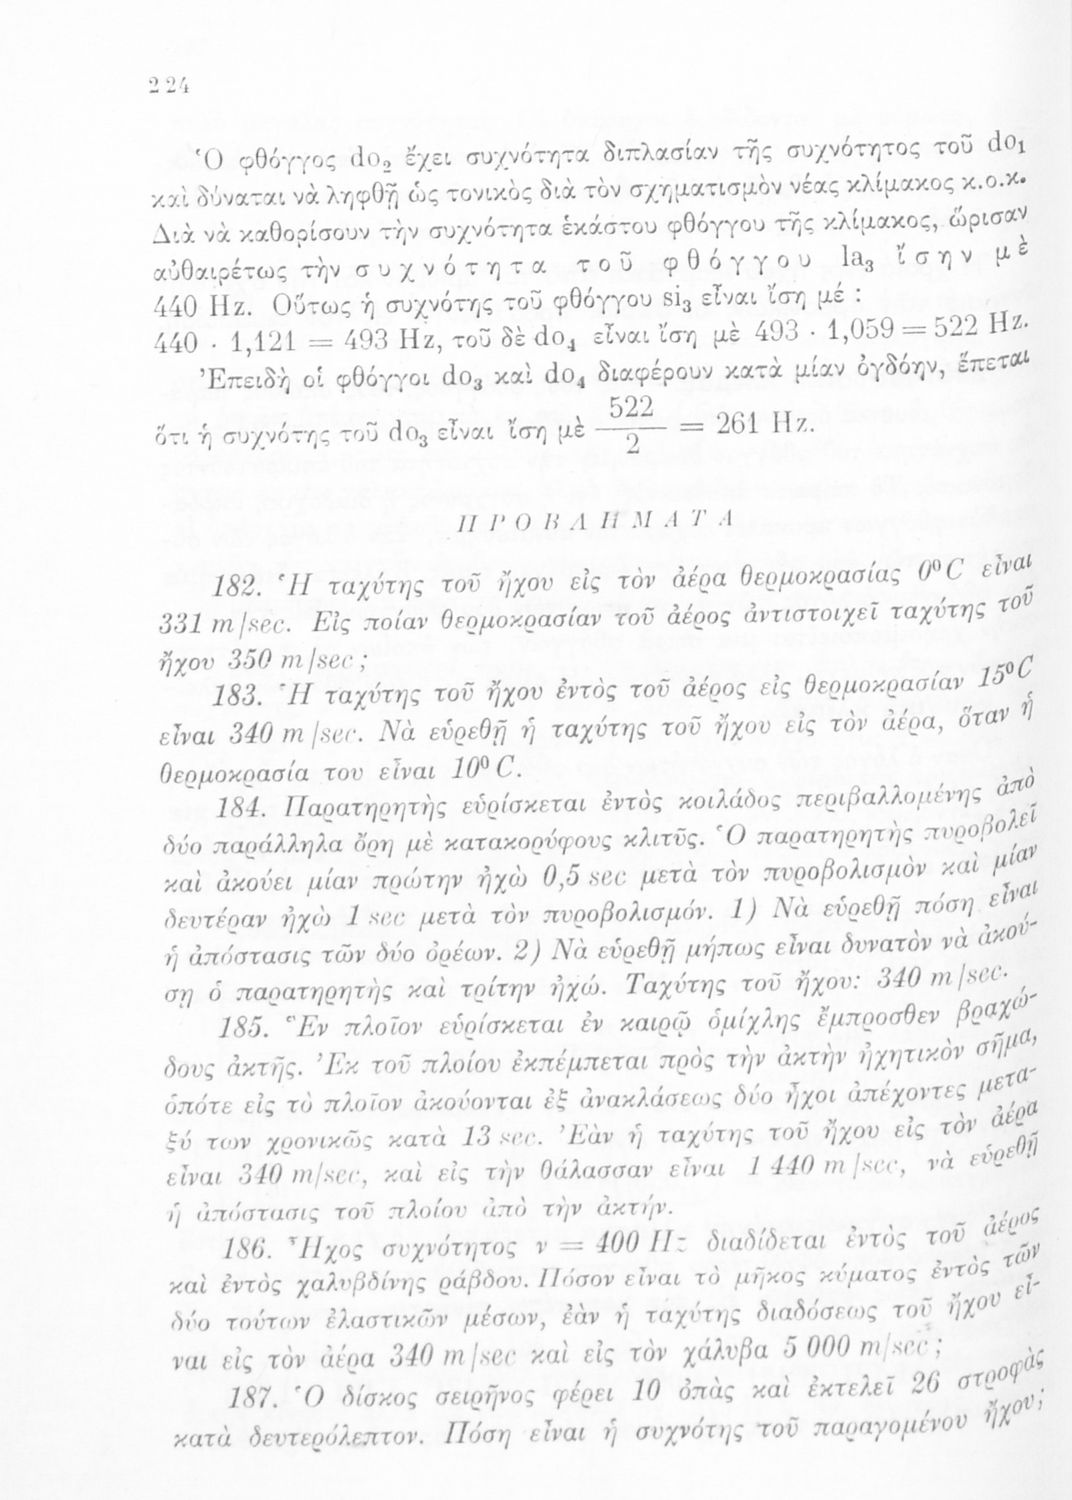 224
Ὁ φθόγγος do₂ ἔχει συχνότητα διπλασίαν τῆς συχνότητος τοῦ do₁
καὶ δύναται νὰ ληφθῇ ὡς τονικὸς διὰ τὸν σχηματισμὸν νέας κλίμακος κ.ο.κ.
Διὰ νὰ καθορίσουν τὴν συχνότητα ἑκάστου φθόγγου τῆς κλίμακος, ὥρισαν
αὐθαιρέτως τὴν συχνότητα τοῦ φθόγγου la₃ ἴσην μὲ
440 Hz. Οὕτως ἡ συχνότης τοῦ φθόγγου si₃ εἶναι ἴση μέ :
440 · 1,121 = 493 Hz, τοῦ δὲ do₄ εἶναι ἴση μὲ 493 · 1,059 = 522 Hz.
Ἐπειδὴ οἱ φθόγγοι do₃ καὶ do₄ διαφέρουν κατὰ μίαν ὀγδόην, ἕπεται
ὅτι ἡ συχνότης τοῦ do₃ εἶναι ἴση μὲ 522/2 = 261 Hz.
ΠΡΟΒΛΗΜΑΤΑ
182. Ἡ ταχύτης τοῦ ἤχου εἰς τὸν ἀέρα θερμοκρασίας 0⁰ C εἶναι
331 m/sec. Εἰς ποίαν θερμοκρασίαν τοῦ ἀέρος ἀντιστοιχεῖ ταχύτης τοῦ
ἤχου 350 m/sec ;
183. Ἡ ταχύτης τοῦ ἤχου ἐντὸς τοῦ ἀέρος εἰς θερμοκρασίαν 15⁰ C
εἶναι 340 m/sec. Νὰ εὑρεθῇ ἡ ταχύτης τοῦ ἤχου εἰς τὸν ἀέρα, ὅταν ἡ
θερμοκρασία του εἶναι 10⁰ C.
184. Παρατηρητὴς εὑρίσκεται ἐντὸς κοιλάδος περιβαλλομένης ἀπὸ
δύο παράλληλα ὄρη μὲ κατακορύφους κλιτῦς. Ὁ παρατηρητὴς πυροβολεῖ
καὶ ἀκούει μίαν πρώτην ἠχὼ 0,5 sec μετὰ τὸν πυροβολισμὸν καὶ μίαν
δευτέραν ἠχὼ 1 sec μετὰ τὸν πυροβολισμόν. 1) Νὰ εὑρεθῇ πόση εἶναι
ἡ ἀπόστασις τῶν δύο ὀρέων. 2) Νὰ εὑρεθῇ μήπως εἶναι δυνατὸν νὰ ἀκού-
σῃ ὁ παρατηρητὴς καὶ τρίτην ἠχώ. Ταχύτης τοῦ ἤχου: 340 m/sec.
185. Ἓν πλοῖον εὑρίσκεται ἐν καιρῷ ὁμίχλης ἔμπροσθεν βραχώ-
δους ἀκτῆς. Ἐκ τοῦ πλοίου ἐκπέμπεται πρὸς τὴν ἀκτὴν ἠχητικὸν σῆμα,
ὁπότε εἰς τὸ πλοῖον ἀκούονται ἐξ ἀνακλάσεως δύο ἦχοι ἀπέχοντες μετα-
ξύ των χρονικῶς κατὰ 13 sec. Ἐὰν ἡ ταχύτης τοῦ ἤχου εἰς τὸν ἀέρα
εἶναι 340 m/sec, καὶ εἰς τὴν θάλασσαν εἶναι 1 440 m/sec, νὰ εὑρεθῇ
ἡ ἀπόστασις τοῦ πλοίου ἀπὸ τὴν ἀκτήν.
186. Ἦχος συχνότητος ν = 400 Hz διαδίδεται ἐντὸς τοῦ ἀέρος
καὶ ἐντὸς χαλυβδίνης ράβδου. Πόσον εἶναι τὸ μῆκος κύματος ἐντὸς τῶν
δύο τούτων ἐλαστικῶν μέσων, ἐὰν ἡ ταχύτης διαδόσεως τοῦ ἤχου εἶ-
ναι εἰς τὸν ἀέρα 340 m/sec καὶ εἰς τὸν χάλυβα 5 000 m/sec ;
187. Ὁ δίσκος σειρῆνος φέρει 10 ὀπὰς καὶ ἐκτελεῖ 26 στροφὰς
κατὰ δευτερόλεπτον. Πόση εἶναι ἡ συχνότης τοῦ παραγομένου ἤχου;